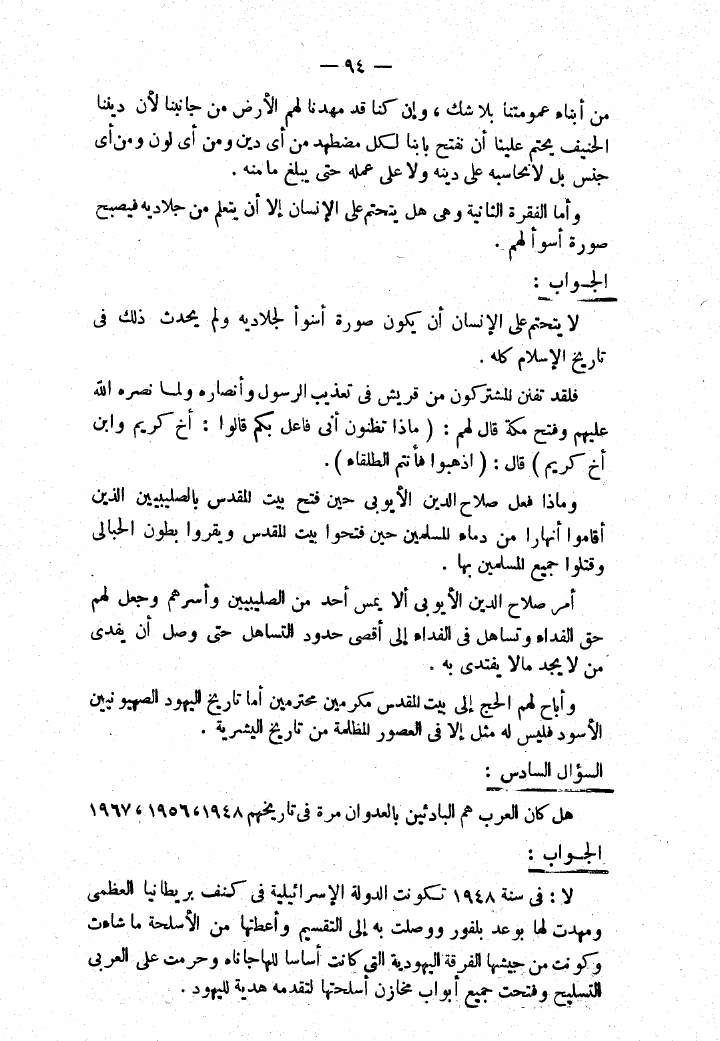 — ٩٤ —
من أبناء عمومتنا بلا شك ، وإن كنا قد مهدنا لهم الأرض من جانبنا لأن ديننا
الحنيف يحتم علينا أن نفتح بابنا لكل مضطهد من أى دين ومن أى لون ومن أى
جنس بل لا نحاسبه على دينه ولا على عمله حتى يبلغ مامنه .
وأما الفقرة الثانية وهى هل يتحتم على الإنسان إلا أن يتعلم من جلاديه فيصبح
صورة أسوأ لهم .
الجـواب :
لا يتحتم على الإنسان أن يكون صورة أسوأ لجلاديه ولم يحدث ذلك فى
تاريخ الإسلام كله .
فلقد تفنن المشتركون من قريش فى تعذيب الرسول وأنصاره ولمـا نصره الله
عليهم وفتح مكة قال لهم : ( ماذا تظنون أنى فاعل بكم قالوا : أخ كريم وابن
أخ كريم ) قال : ( اذهبوا فأنتم الطلقاء ) .
وماذا فعل صلاح الدين الأيوبى حين فتح بيت المقدس بالصليبيين الذين
أقاموا أنهارا من دماء المسلمين حين فتحوا بيت المقدس وبقروا بطون الحبالى
وقتلوا جميع المسلمين بها .
أمر صلاح الدين الأيوبى ألا يمس أحد من الصليبيين وأسرهم وجعل لهم
حق الفداء وتساهل فى الفداء إلى أقصى حدود التساهل حتى وصل أن يفدى
من لا يجد مالا يفتدى به .
وأباح لهم الحج إلى بيت المقدس مكرمين محترمين أما تاريخ اليهود الصهيونيين
الأسود فليس له مثل إلا فى العصور المظلمة من تاريخ البشرية .
السؤال السادس :
هل كان العرب هم البادئين بالعدوان مرة فى تاريخهم ١٩٤٨، ١٩٥٦ ، ١٩٦٧
الجـواب :
لا : فى سنة ١٩٤٨ تكونت الدولة الإسرائيلية فى كنف بريطانيا العظمى
ومهدت لها بوعد بلفور ووصلت به إلى التقسيم وأعطتها من الأسلحة ما شاءت
وكونت من جيشها الفرقة اليهودية التى كانت أساسا للهاجاناه وحرمت على العربى
التسليح وفتحت جميع أبواب مخازن أسلحتها لتقدمه هدية لليهود .